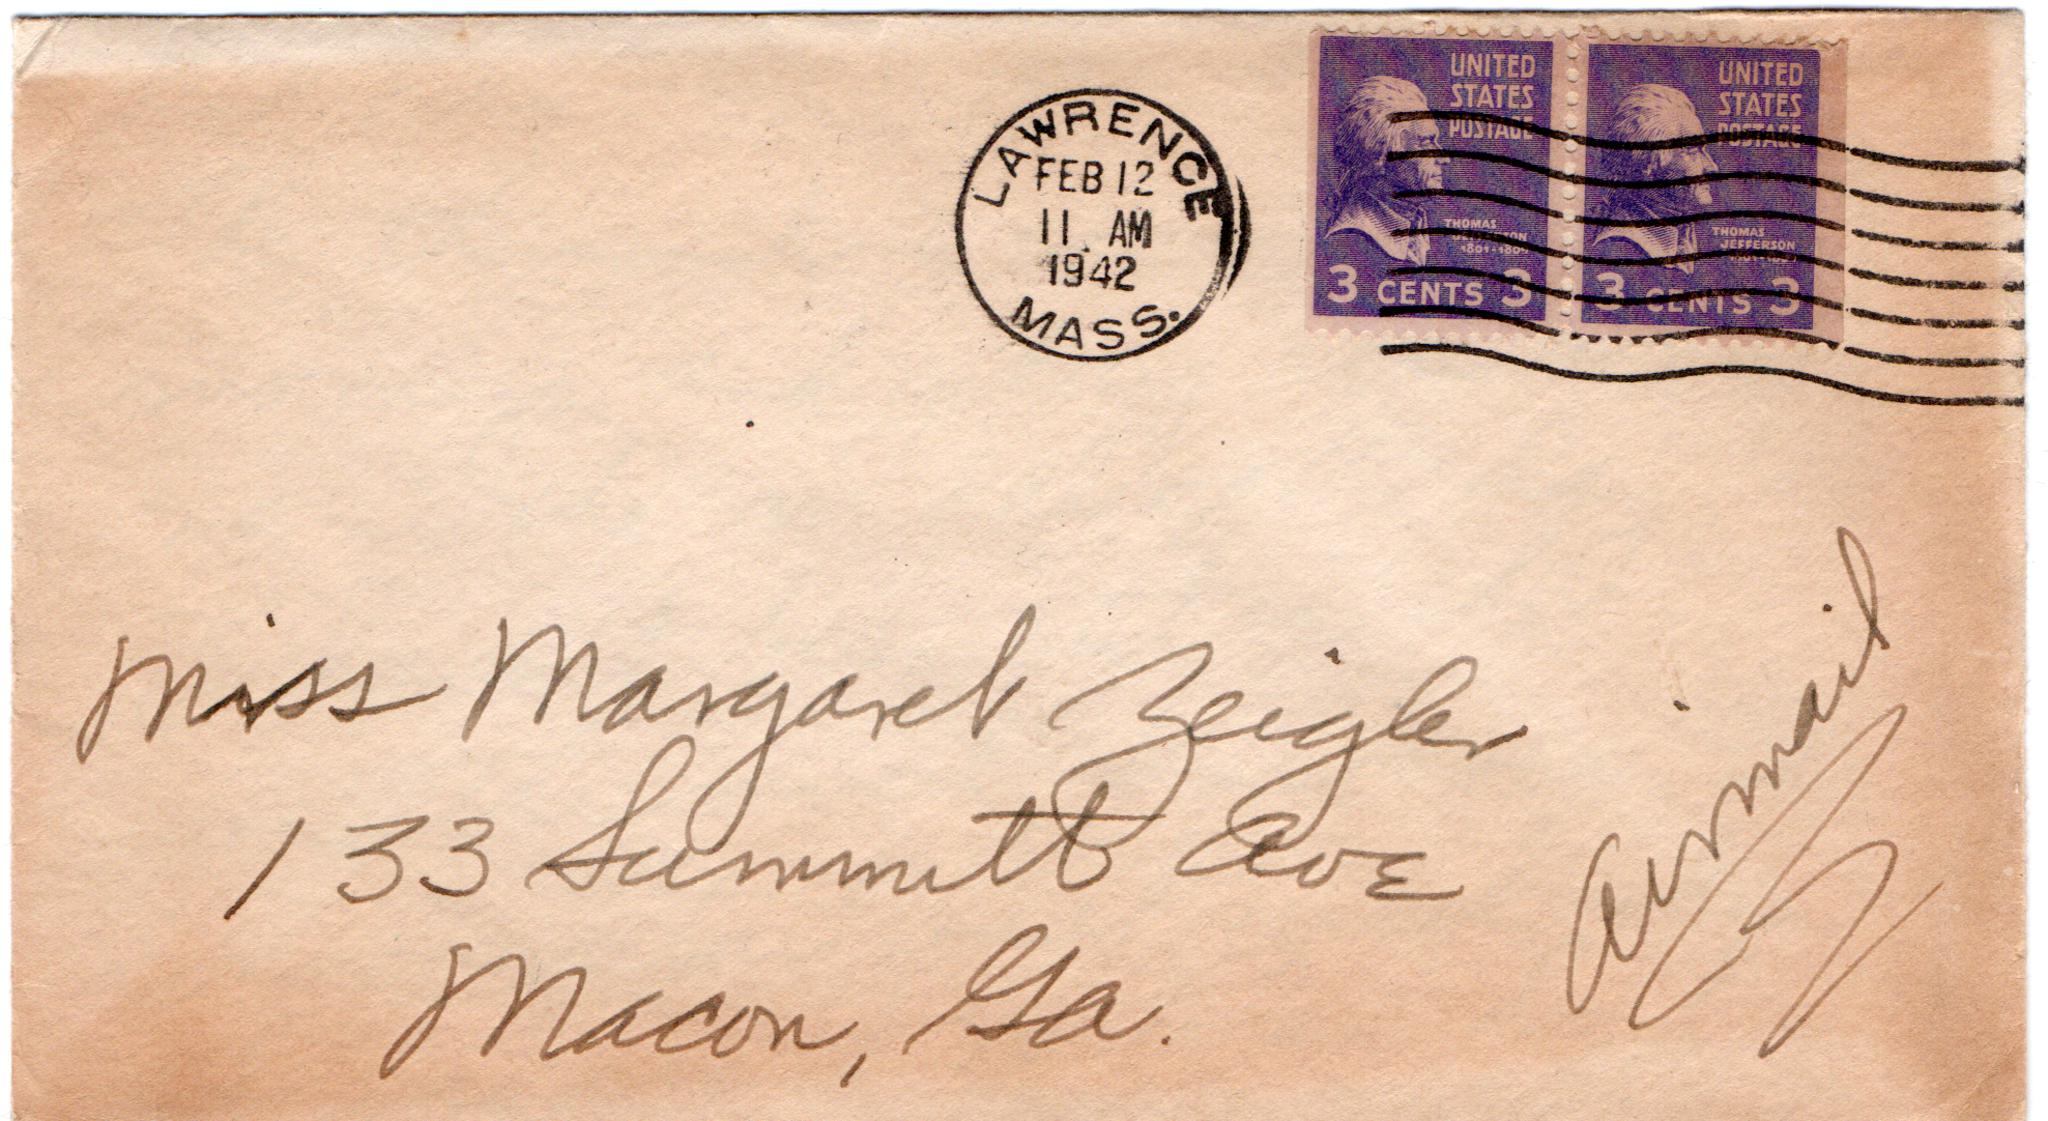 LAWRENCE
FEB 12
11 AM
1942
MASS.
UNITED
STATES
POSTAGE
THOMAS
JEFFERSON
1801-1809
3 CENTS 3
UNITED
STATES
POSTAGE
THOMAS
JEFFERSON
3 CENTS 3
Miss Margaret Zeigler
133 Summitt Ave
Macon, Ga.
Airmail